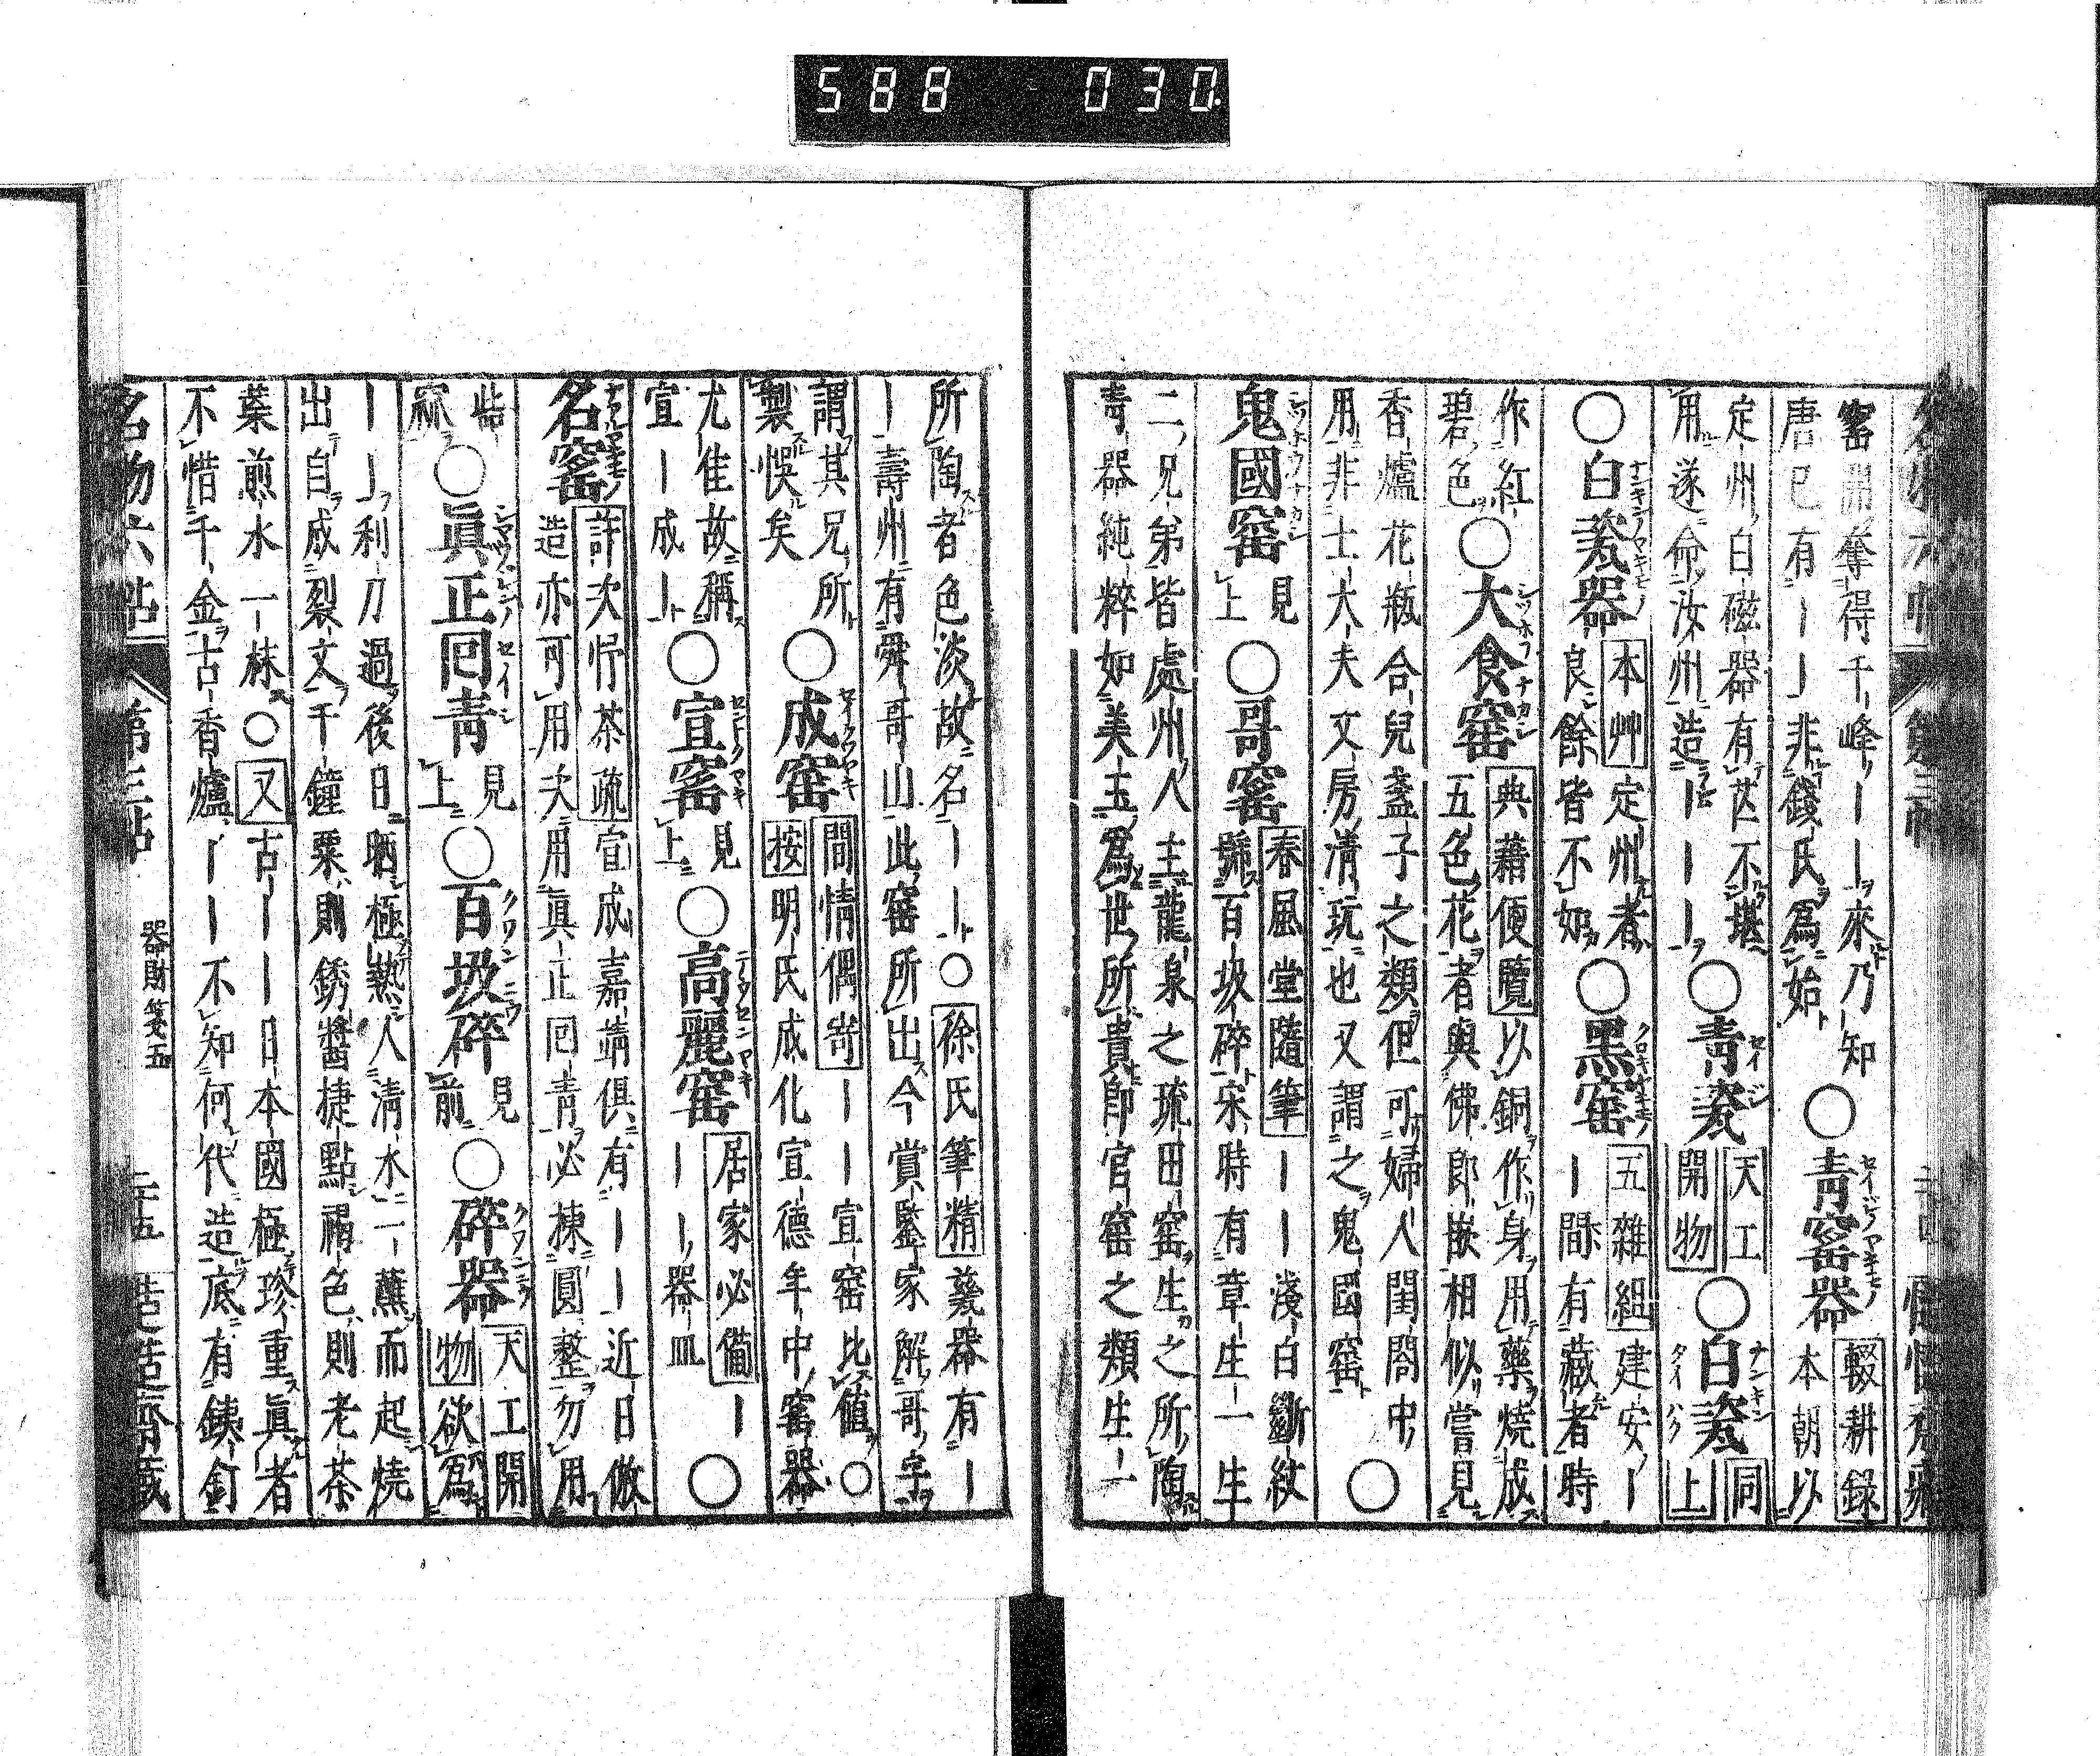 588 030
窰開奪得千峰｜｜來乃知
唐已有｜｜非錢氏爲始
○青窑器
輟耕録
本朝以
定州白磁器有芒不堪
用遂命汝州造｜｜｜
○青瓷
天工
開物
○白瓷
同
上
○白甆器
本艸
定州者
良餘皆不如
○黑窑
五雜組
建安｜
｜間有藏者時
作紅
碧色
○大食窑
典藉便覽
以銅作身用藥燒成
五色花者與佛郎嵌相似嘗見
香爐花瓶合兒盞子之類但可婦人閨閤中
用非士大夫文房清玩也又謂之鬼國窑
○
鬼國窑
見
上
○哥窰
春風堂隨筆
｜｜淺白斷紋
號百圾碎宋時有章生一生
二兄弟皆處州人主龍泉之琉田窑生二所陶
青器純粹如美玉爲世所貴即官窑之類生一
所陶者色淡故名｜｜○徐氏筆精甆器有｜
｜壽州有舜哥山此窑所出今賞鑒家解哥字
謂其兄所
製悮矣
○成窑
間情偶寄
｜｜宣窑比値○
按明氏成化宣德年中窰器
尤佳故稱
宣｜成｜
○宣窰
見
上
○高麗窑
居家必備
｜
｜｜器皿
○
名窑
許次忬茶疏
宣成嘉靖俱有｜｜近日倣
造亦可用次用眞正回青必揀圓整勿用
啙
窳
○眞正囘青
見
上
○百圾碎
見
前
○碎器
天工開
物
欲爲
｜｜利刀過後日晒極熱人清水一蘸而起燒
出自成裂文千鐘粟則銹醬捷點褐色則老茶
葉煎水一抹○又古｜｜日本國極珍重眞者
不惜千金古香爐｜｜不知何代造底有鐵釘
名物六帖
第三帖
器財箋五
二十五